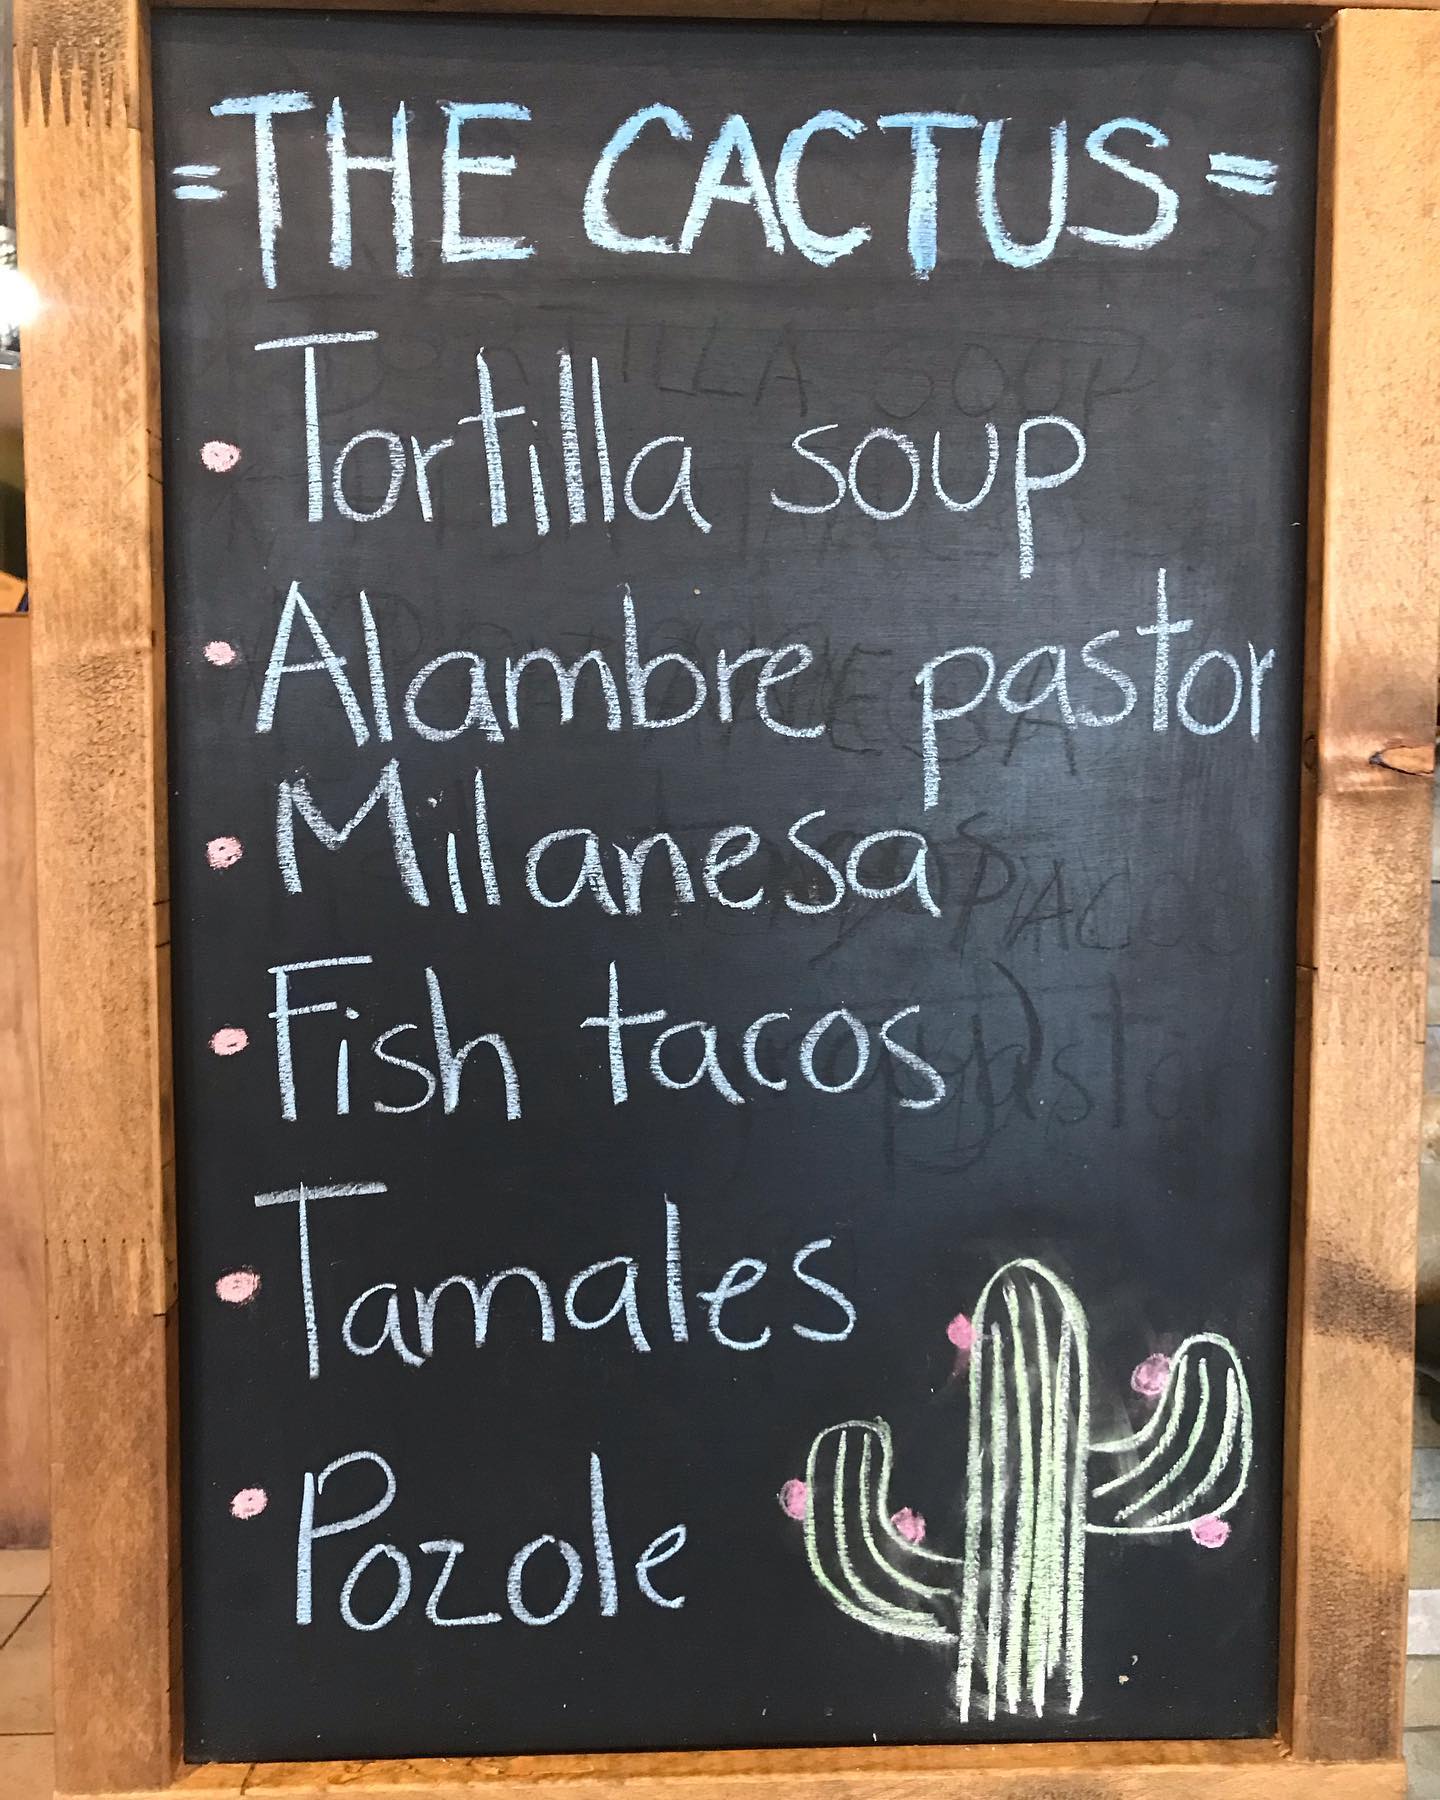 =THE CACTUS=
• Tortilla soup
• Alambre pastor
• Milanesa
• Fish tacos
• Tamales
• Pozole